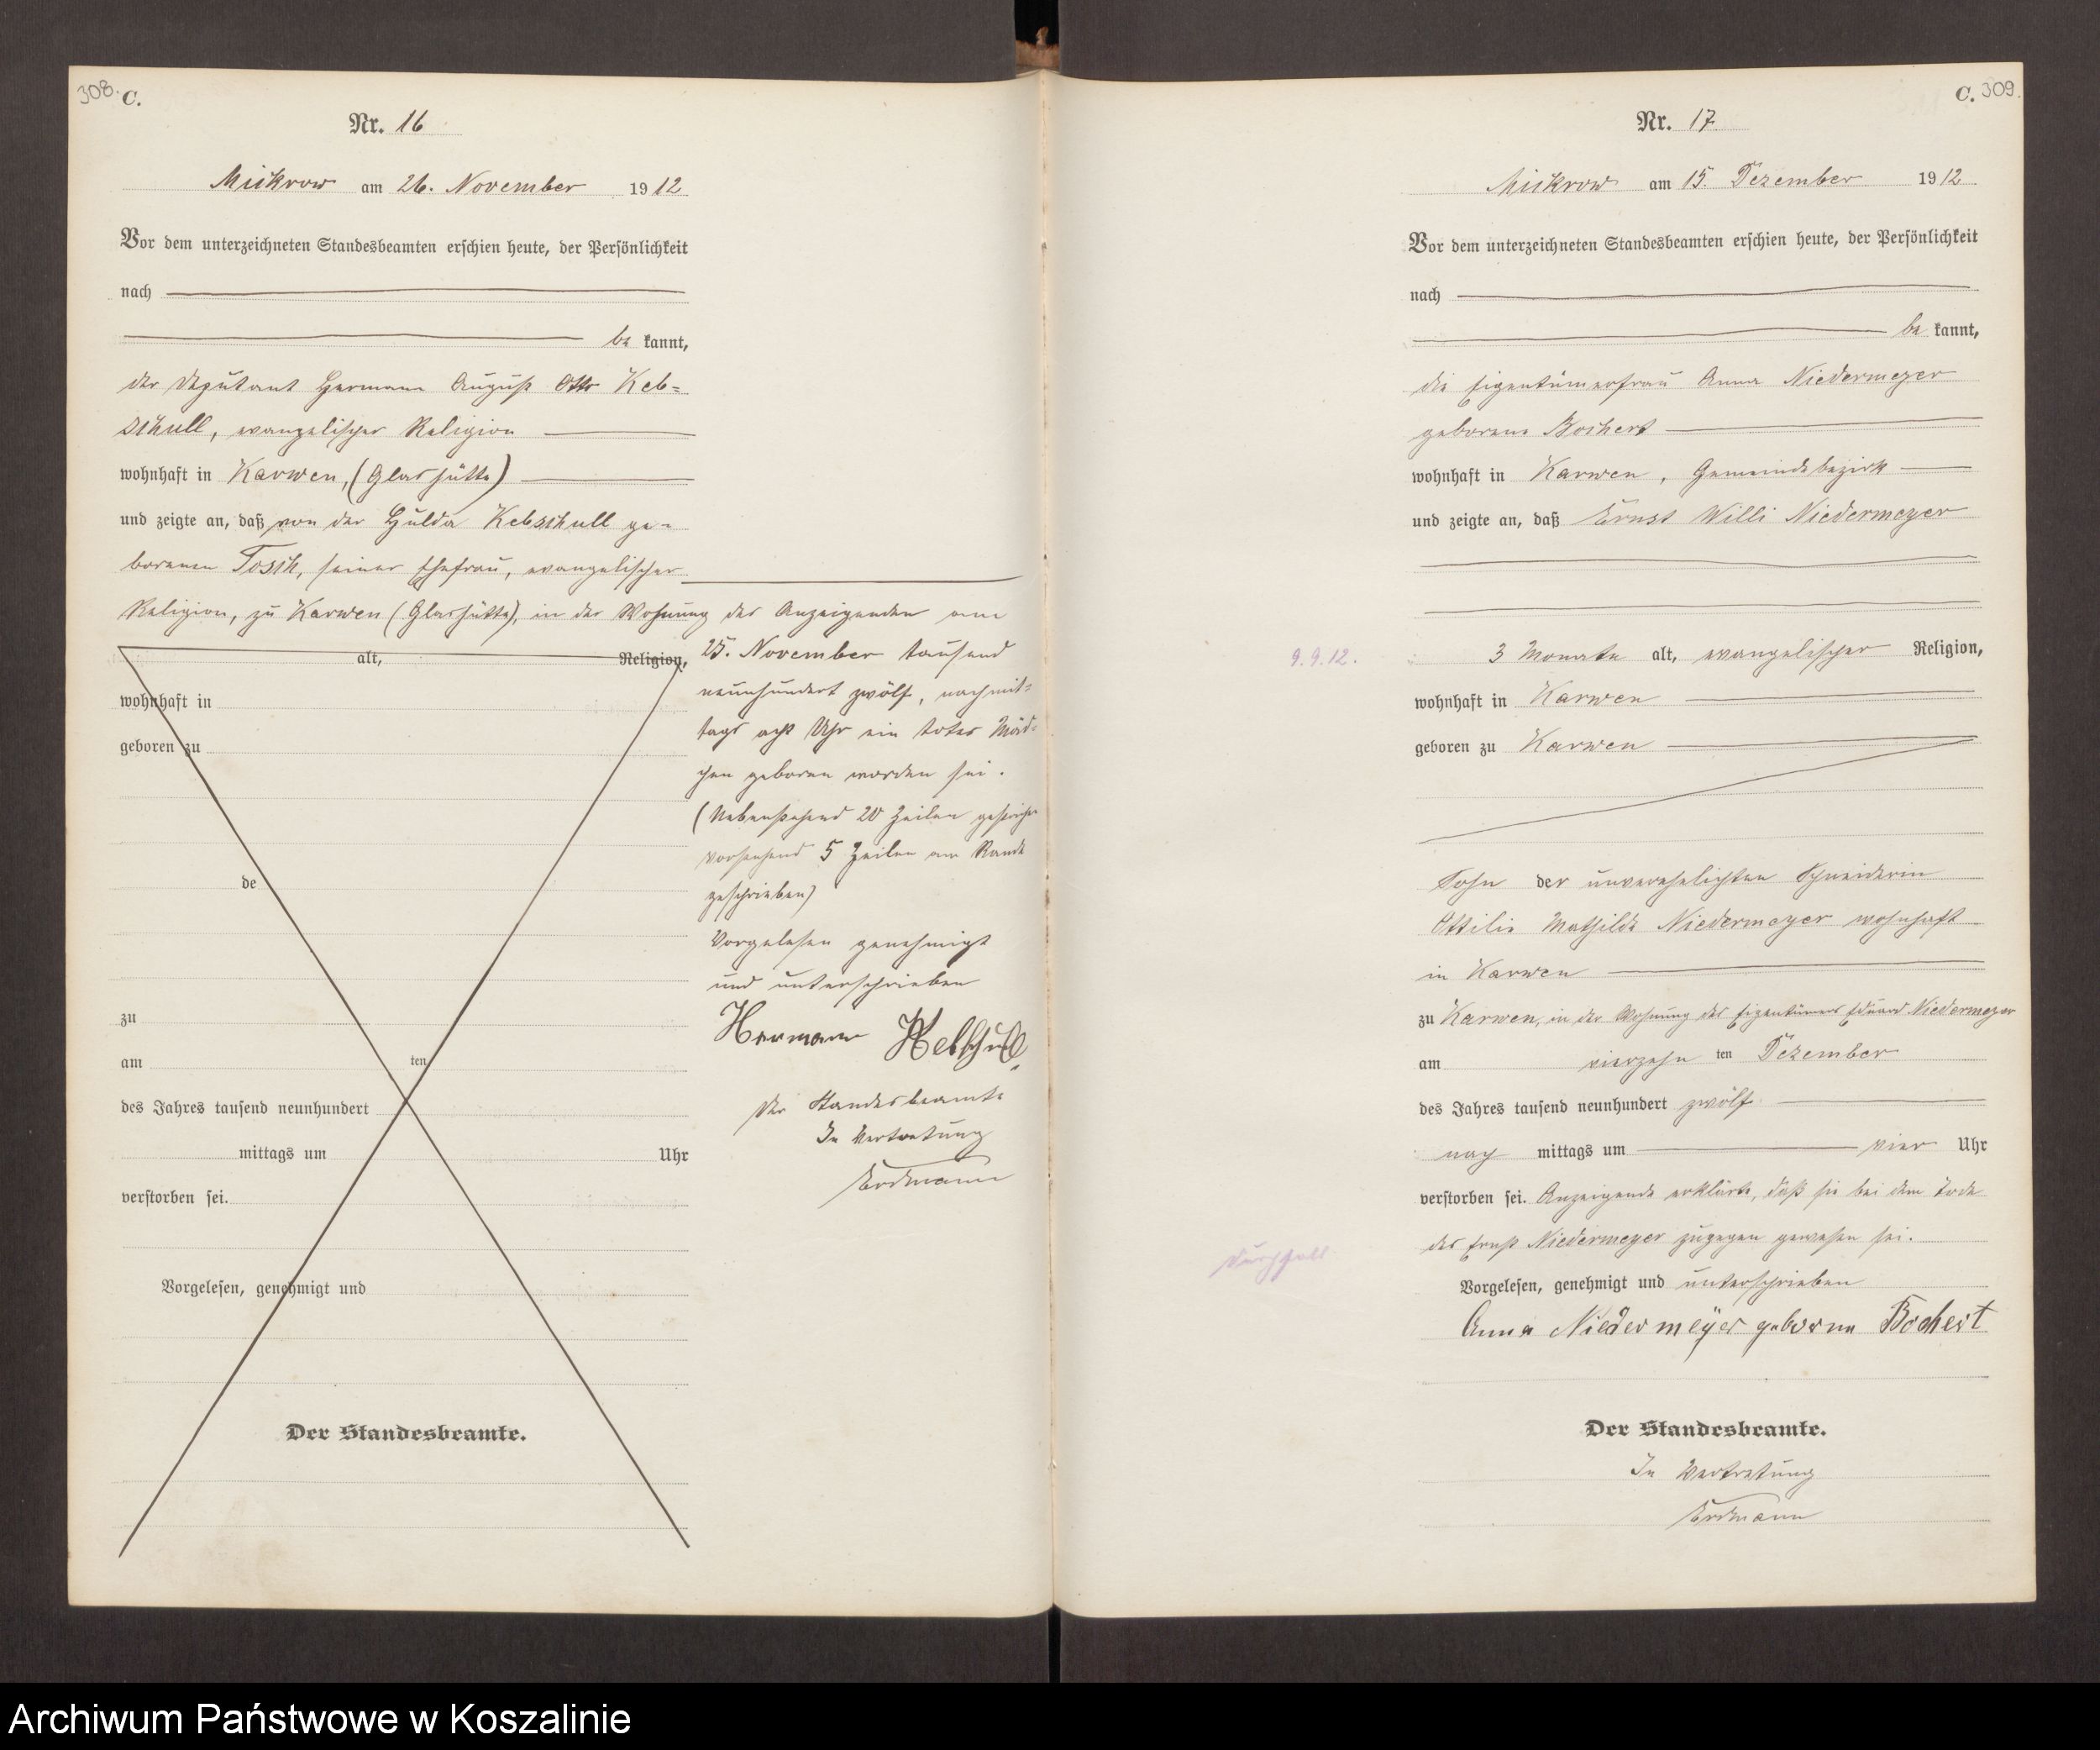 308.
C.
Nr. 16
Mickrow am 26. November 1912
Vor dem unterzeichneten Standesbeamten erschien heute, der Persönlichkeit
nach
be kannt,
der Deputant Hermann August Otto Keb=
schull, evangelischer Religion
wohnhaft in Karwen, (Glashütte)
und zeigte an, daß von der Hulda Kebschull ge-
borenen Tosch, seiner Ehefrau, evangelischer
Religion, zu Karwen (Glashütte), in der Wohnung des Anzeigenden am
25. November tausend
neunhundert zwölf, nachmit=
tags acht Uhr ein totes Mäd=
chen geboren worden sei.
(Nebenstehend 20 Zeilen gestrichen
vorstehend 5 Zeilen am Rande
geschrieben)
Vorgelesen genehmigt
und unterschrieben
Hermann Kebschull
Der Standesbeamte
In Vertretung
Erdmann
alt, Religion,
wohnhaft in
geboren zu
de
zu
am ten
des Jahres tausend neunhundert
mittags um Uhr
verstorben sei.
Vorgelesen, genehmigt und
Der Standesbeamte.
C. 309.
Nr. 17
Mickrow am 15. Dezember 1912
Vor dem unterzeichneten Standesbeamten erschien heute, der Persönlichkeit
nach
be kannt,
die Eigentümerfrau Anna Niedermeyer
geborene Bochert
wohnhaft in Karwen, Gemeindebezirk
und zeigte an, daß Ernst Willi Niedermeyer
9.9.12.
3 Monate alt, evangelischer Religion,
wohnhaft in Karwen
geboren zu Karwen
Sohn der unverehelichten Schneiderin
Ottilie Mathilde Niedermeyer wohnhaft
in Karwen
zu Karwen, in der Wohnung des Eigentümers Eduard Niedermeyer
am vierzehn ten Dezember
des Jahres tausend neunhundert zwölf
nach mittags um vier Uhr
verstorben sei. Anzeigende erklärte, daß sie bei dem Tode
des Ernst Niedermeyer zugegen gewesen sei.
Durchfall
Vorgelesen, genehmigt und unterschrieben
Anna Niedermeÿer geborne Bochert
Der Standesbeamte.
In Vertretung
Erdmann
Archiwum Państwowe w Koszalinie